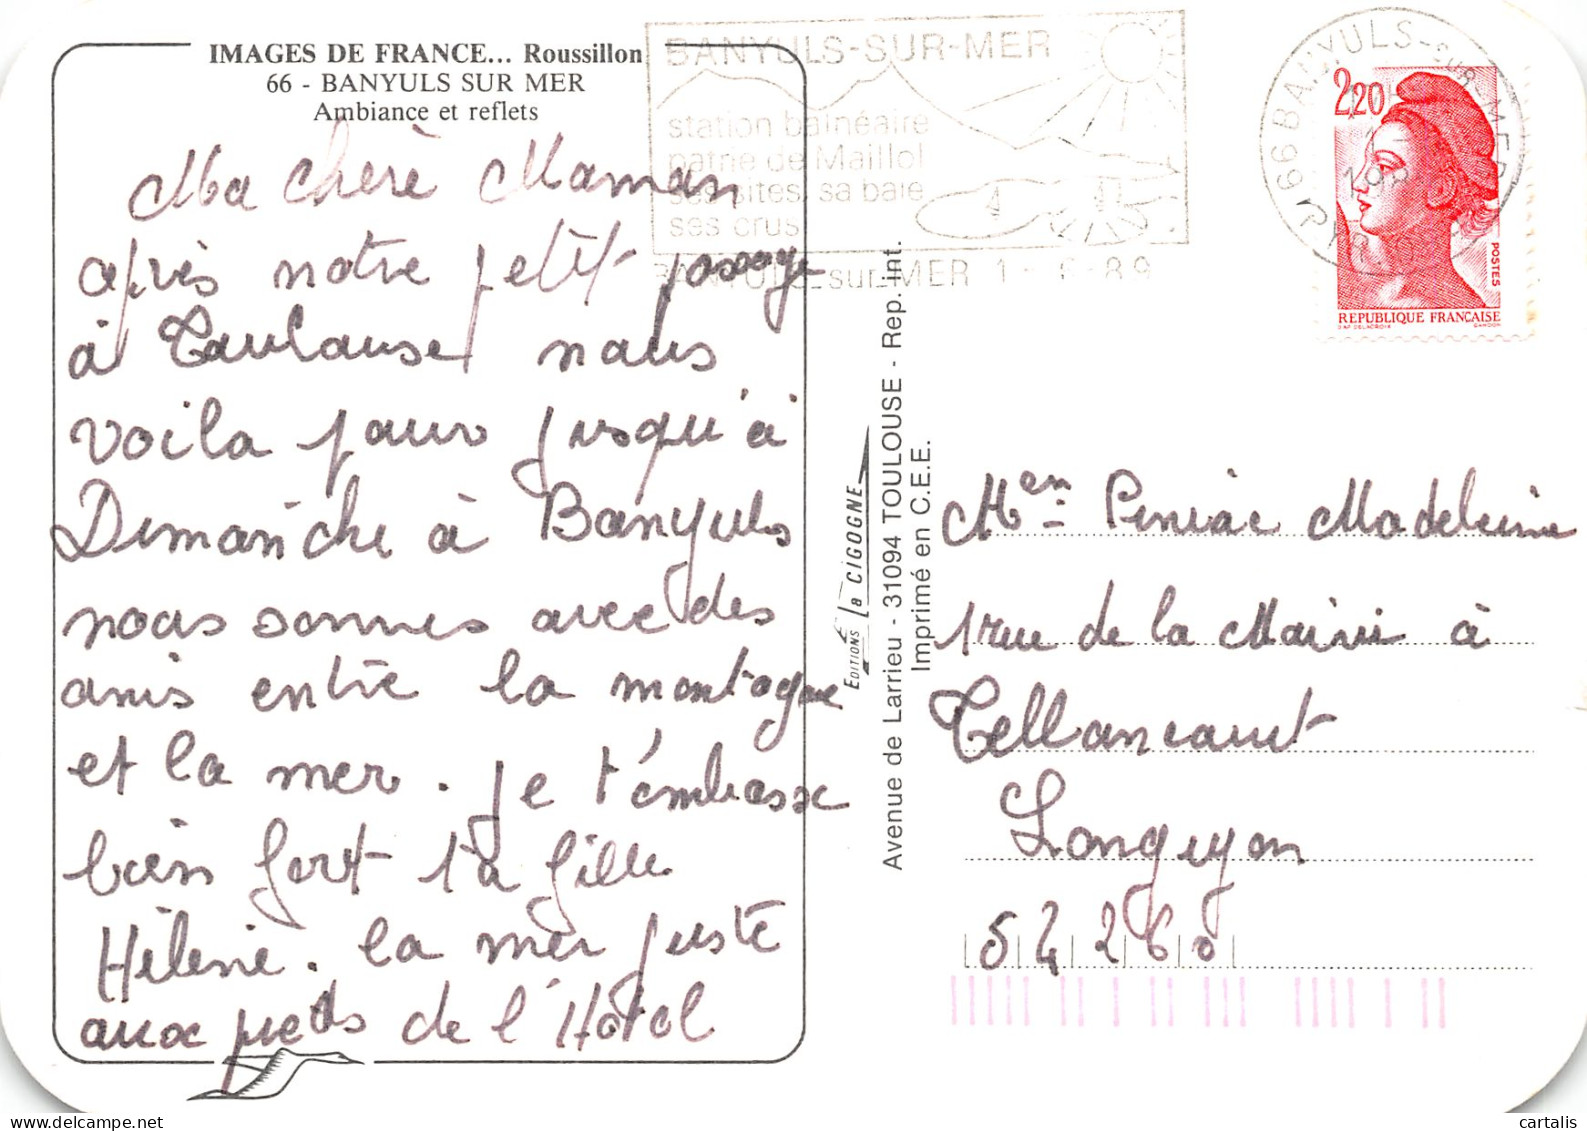 IMAGES DE FRANCE... Roussillon
66 - BANYULS SUR MER
Ambiance et reflets
Ma chère Maman
après notre petit passage
à Toulouse nous
voila pour jusqu'à
Dimanche à Banyuls
nous sommes avec des
amis entre la montagne
et la mer. je t'embrasse
bien fort ta fille
Hélène. la mer juste
aux pieds de l'Hôtel
BANYULS-SUR-MER
station balnéaire
patrie de Maillol
ses sites, sa baie
ses crus
BANYULS-sur-MER 1-6-89
66 BANYULS-SUR-MER
2,20
POSTES
REPUBLIQUE FRANÇAISE
D'AP. DELACROIX GANDON
EDITIONS La CIGOGNE
Avenue de Larrieu - 31094 TOULOUSE - Rep. int.
Imprimé en C.E.E.
Mem Peniac Madeleine
1 rue de la Mairie à
Tellancourt
Longuyon
54260
cartalis
www.delcampe.net